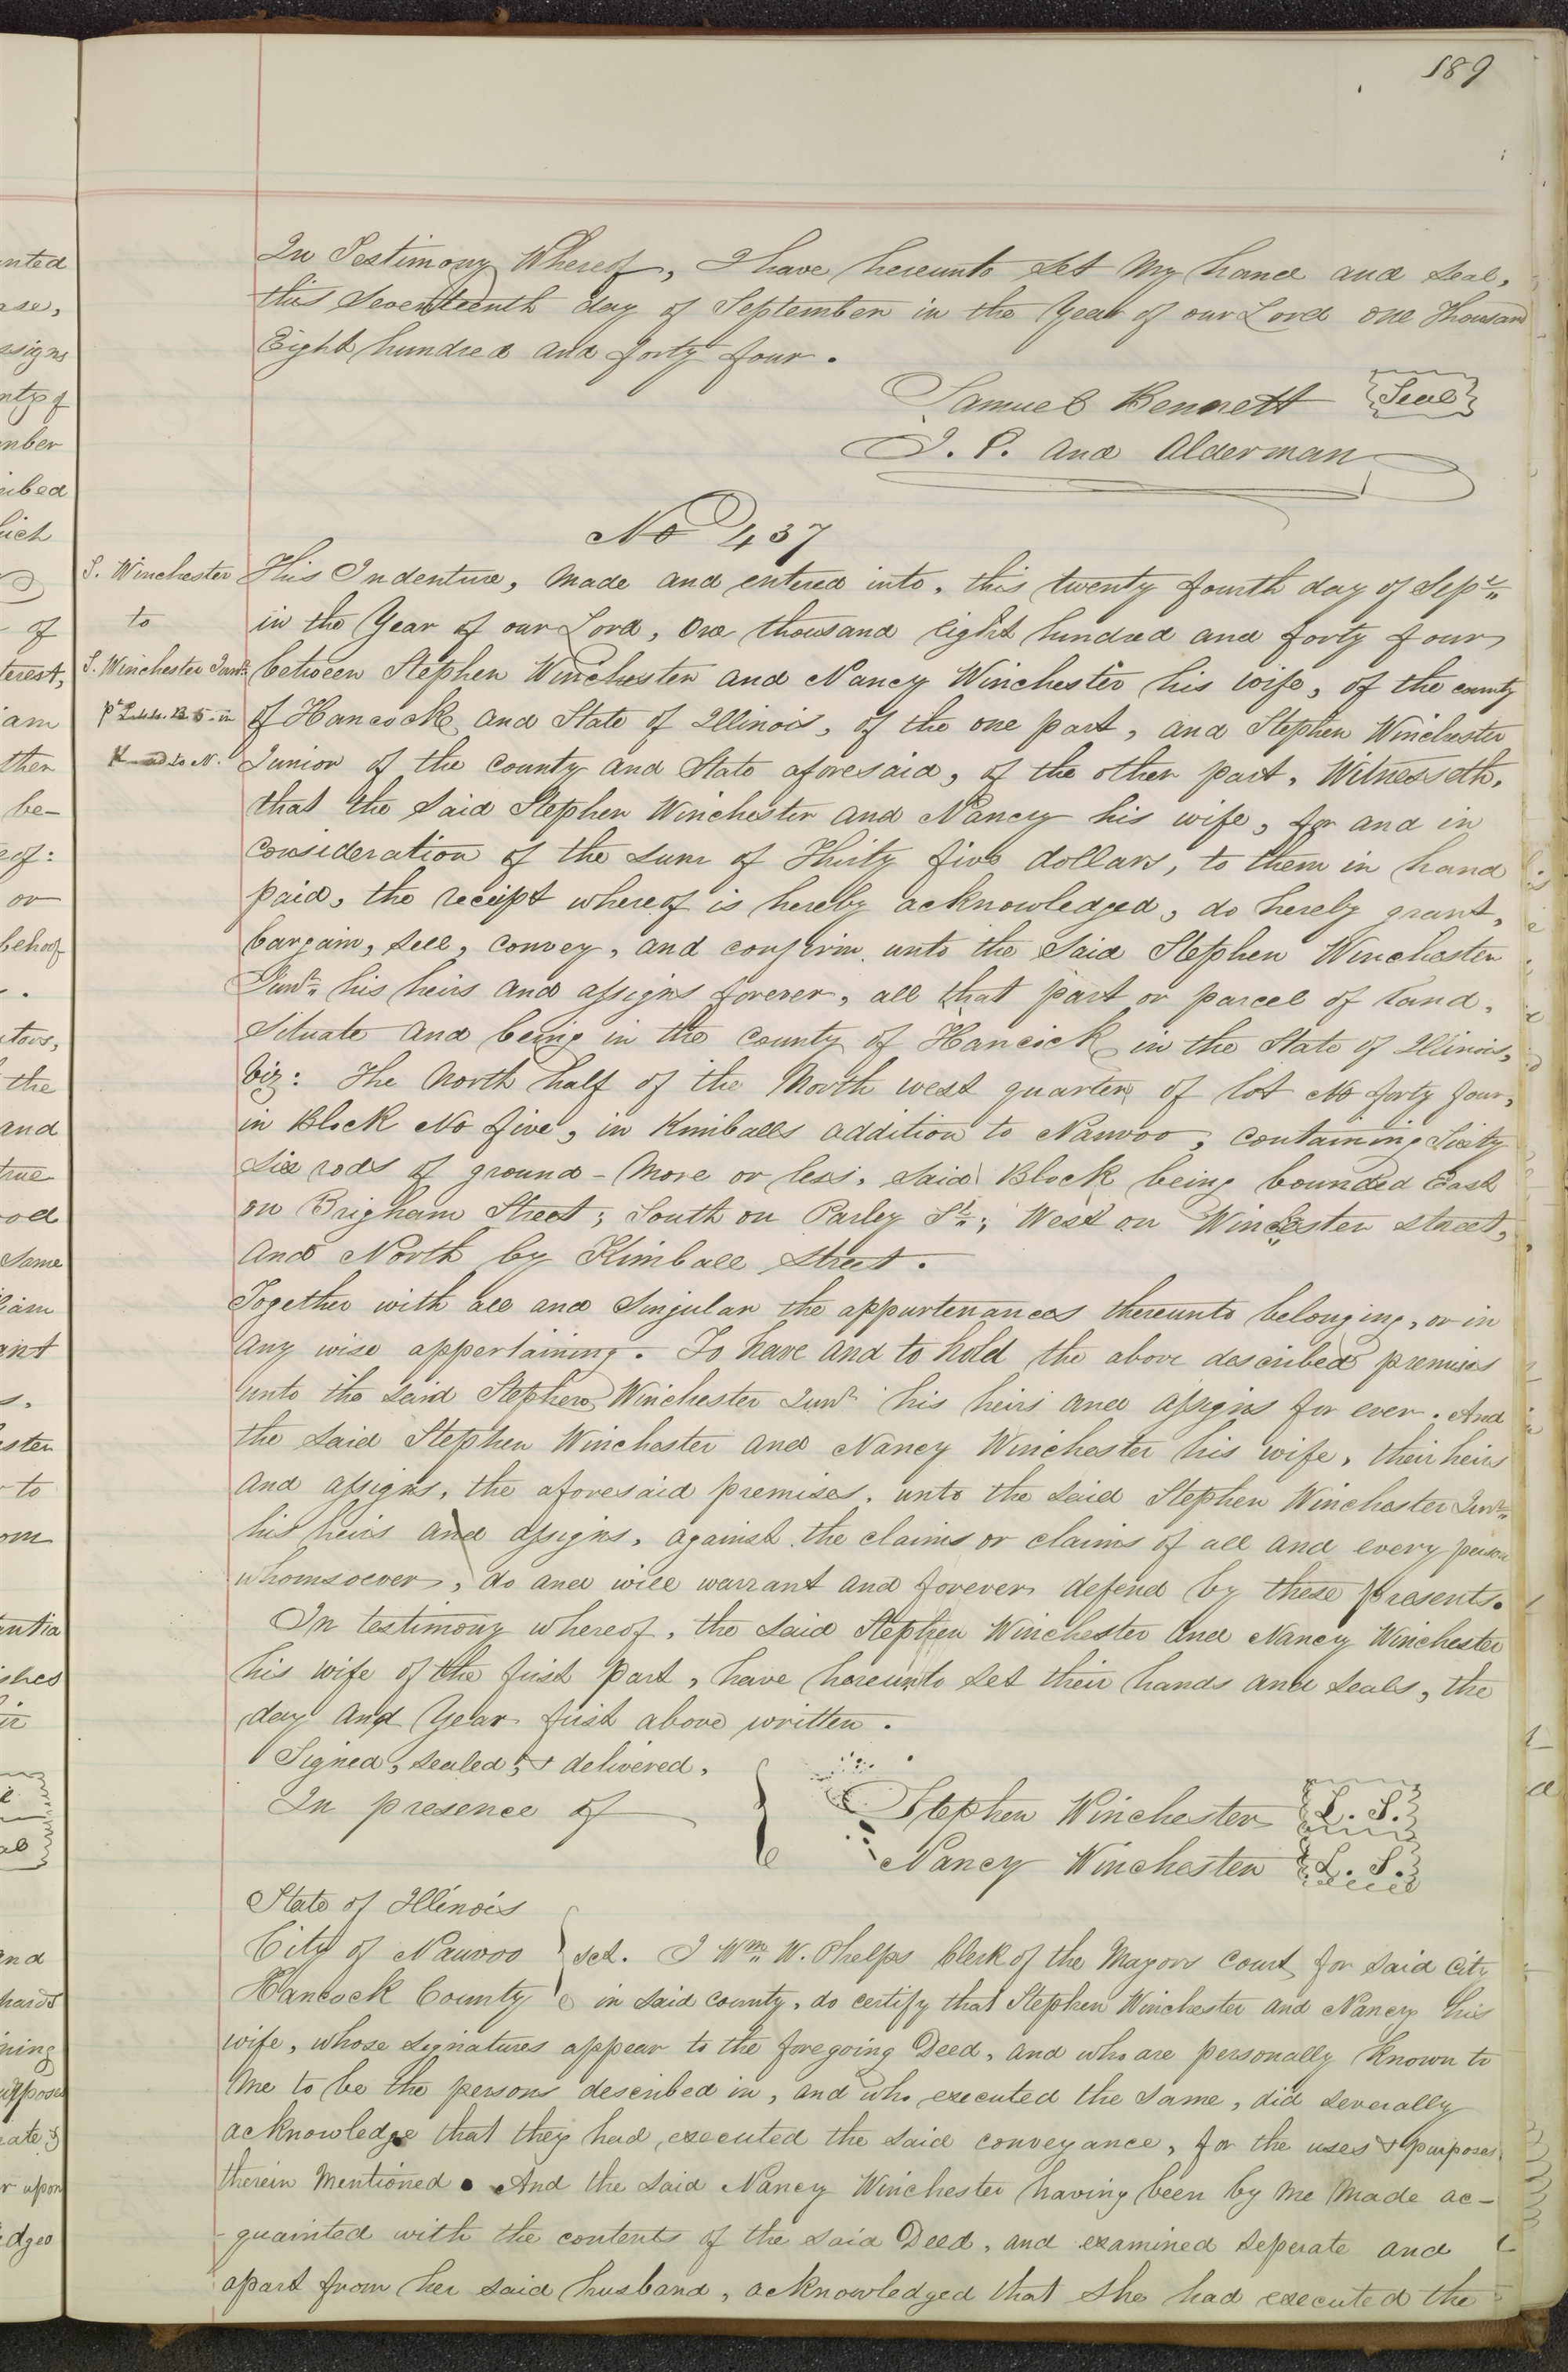 189
In Testimony Whereof, I have hereunto set my hand and seal,
this Seventeenth day of September in the Year of our Lord one Thousand
Eight hundred and forty four.
Samuel Bennett Seal
J. P. and Alderman
No 437
S. Winchester
to
S. Winchester Junr.
This Indenture, made and entered into, this twenty fourth day of Sepr.
in the Year of our Lord, One thousand eight hundred and forty four
between Stephen Winchester and Nancy Winchester his wife, of the county
of Hancock and State of Illinois, of the one part, and Stephen Winchester
Junior of the county and State aforesaid, of the other part, Witnesseth,
that the said Stephen Winchester and Nancy his wife, for and in
consideration of the sum of Thirty five dollars, to them in hand
paid, the receipt whereof is hereby acknowledged, do hereby grant,
bargain, sell, convey, and confirm unto the said Stephen Winchester
Junr. his heirs and assigns forever, all that part or parcel of land,
situate and being in the county of Hancock in the State of Illinois,
viz: The North half of the North west quarter of lot No forty four,
in Block No five, in Kimballs addition to Nauvoo, containing Sixty
six rods of ground - more or less, said Block being bounded East
on Brigham Street; South on Parley St.; West on Winchester street,
and North by Kimball street.
Together with all and singular the appurtenances thereunto belonging, or in
any wise appertaining. To have and to hold the above described premises
unto the said Stephen Winchester Junr his heirs and assigns for ever. And
the said Stephen Winchester and Nancy Winchester his wife, their heirs
and assigns, the aforesaid premises, unto the said Stephen Winchester Junr.
his heirs and assigns, against the claims or claims of all and every person
whomsoever, do and will warrant and forever defend by these presents.
In testimony whereof, the said Stephen Winchester and Nancy Winchester
his wife of the first part, have hereunto set their hands and seals, the
day and Year first above written.
Signed, sealed, & delivered,
In presence of
Stephen Winchester L. S.
Nancy Winchester L. S.
State of Illinois
City of Nauvoo } sct. I Wm. W. Phelps Clerk of the Mayors Court for said City
Hancock County in said county, do certify that Stephen Winchester and Nancy his
wife, whose signatures appear to the foregoing Deed, and who are personally known to
me to be the persons described in, and who executed the same, did severally
acknowledge that they had executed the said conveyance, for the uses & purposes
therein mentioned. And the said Nancy Winchester having been by me made ac-
-quainted with the contents of the said Deed, and examined seperate and
apart from her said husband, acknowledged that she had executed the